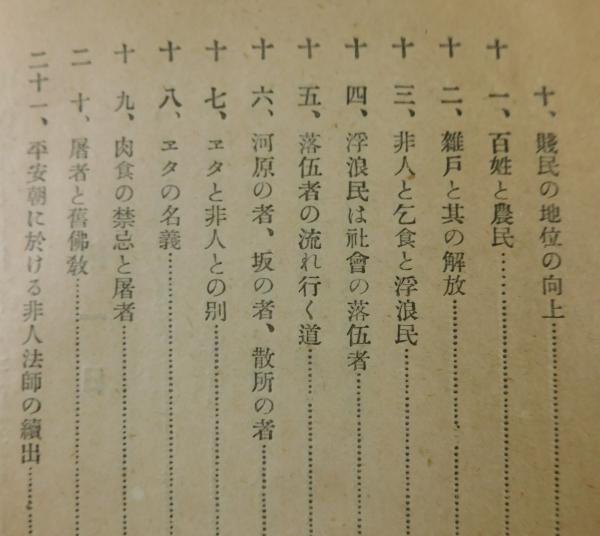 十、賤民の地位の向上……………
十一、百姓と農民……………
十二、雜戸と其の解放……………
十三、非人と乞食と浮浪民……………
十四、浮浪民は社會の落伍者……………
十五、落伍者の流れ行く道……………
十六、河原の者、坂の者、散所の者……………
十七、ヱタと非人との別……………
十八、ヱタの名義……………
十九、肉食の禁忌と屠者……………
二十、屠者と舊佛敎……………
二十一、平安朝に於ける非人法師の續出……………